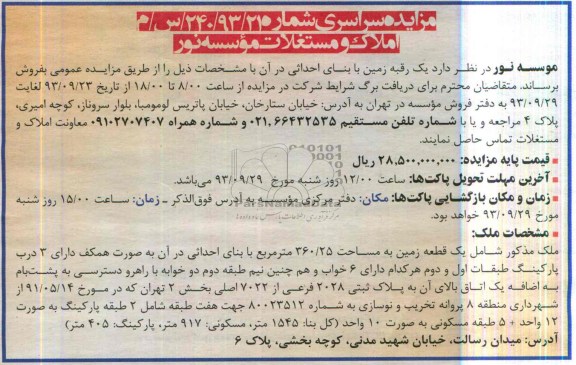 مزایده سراسری شماره ۲۴۰/۹۳/۲۱/س/م
املاک و مستغلات مؤسسه نور
موسسه نور در نظر دارد یک رقبه زمین با بنای احداثی در آن با مشخصات ذیل را از طریق مزایده عمومی بفروش
برساند. متقاضیان محترم برای دریافت برگ شرایط شرکت در مزایده از ساعت ۸/۰۰ تا ۱۸/۰۰ از تاریخ ۹۳/۰۹/۲۳ لغایت
۹۳/۰۹/۲۹ به دفتر فروش مؤسسه در تهران به آدرس: خیابان ستارخان، خیابان پاتریس لومومبا، بلوار سروناز، کوچه امیری،
پلاک ۴ مراجعه و یا با شماره تلفن مستقیم ۶۶۴۳۲۵۳۵،۰۲۱ و شماره همراه ۰۹۱۰۲۷۰۷۴۰۷ معاونت املاک و
مستغلات تماس حاصل نمایند.
قیمت پایه مزایده: ۲۸,۵۰۰,۰۰۰,۰۰۰ ریال
آخرین مهلت تحویل پاکت‌ها: ساعت ۱۲/۰۰ روز شنبه مورخ ۹۳/۰۹/۲۹ می‌باشد.
زمان و مکان بازگشایی پاکت‌ها: مکان: دفتر مرکزی مؤسسه به آدرس فوق‌الذکر ـ زمان: ساعت ۱۵/۰۰ روز شنبه
مورخ ۹۳/۰۹/۲۹ خواهد بود.
مشخصات ملک:
ملک مذکور شامل یک قطعه زمین به مساحت ۳۶۰/۲۵ مترمربع با بنای احداثی در آن به صورت همکف دارای ۳ درب
پارکینگ طبقات اول و دوم هرکدام دارای ۶ خواب و هم چنین نیم طبقه دوم دو خوابه با راهرو دسترسی به پشت‌بام
به اضافه یک اتاق بالای آن به پلاک ثبتی ۲۰۲۸ فرعی از ۷۰۲۲ اصلی بخش ۲ تهران که در مورخ ۹۱/۰۵/۱۴ از
شهرداری منطقه ۸ پروانه تخریب و نوسازی به شماره ۸۰۰۲۳۵۱۲ جهت هفت طبقه شامل ۲ طبقه پارکینگ به صورت
۱۲ واحد + ۵ طبقه مسکونی به صورت ۱۰ واحد (کل بنا: ۱۵۴۵ متر، مسکونی: ۹۱۷ متر، پارکینگ: ۴۰۵ متر)
آدرس: میدان رسالت، خیابان شهید مدنی، کوچه بخشی، پلاک ۶